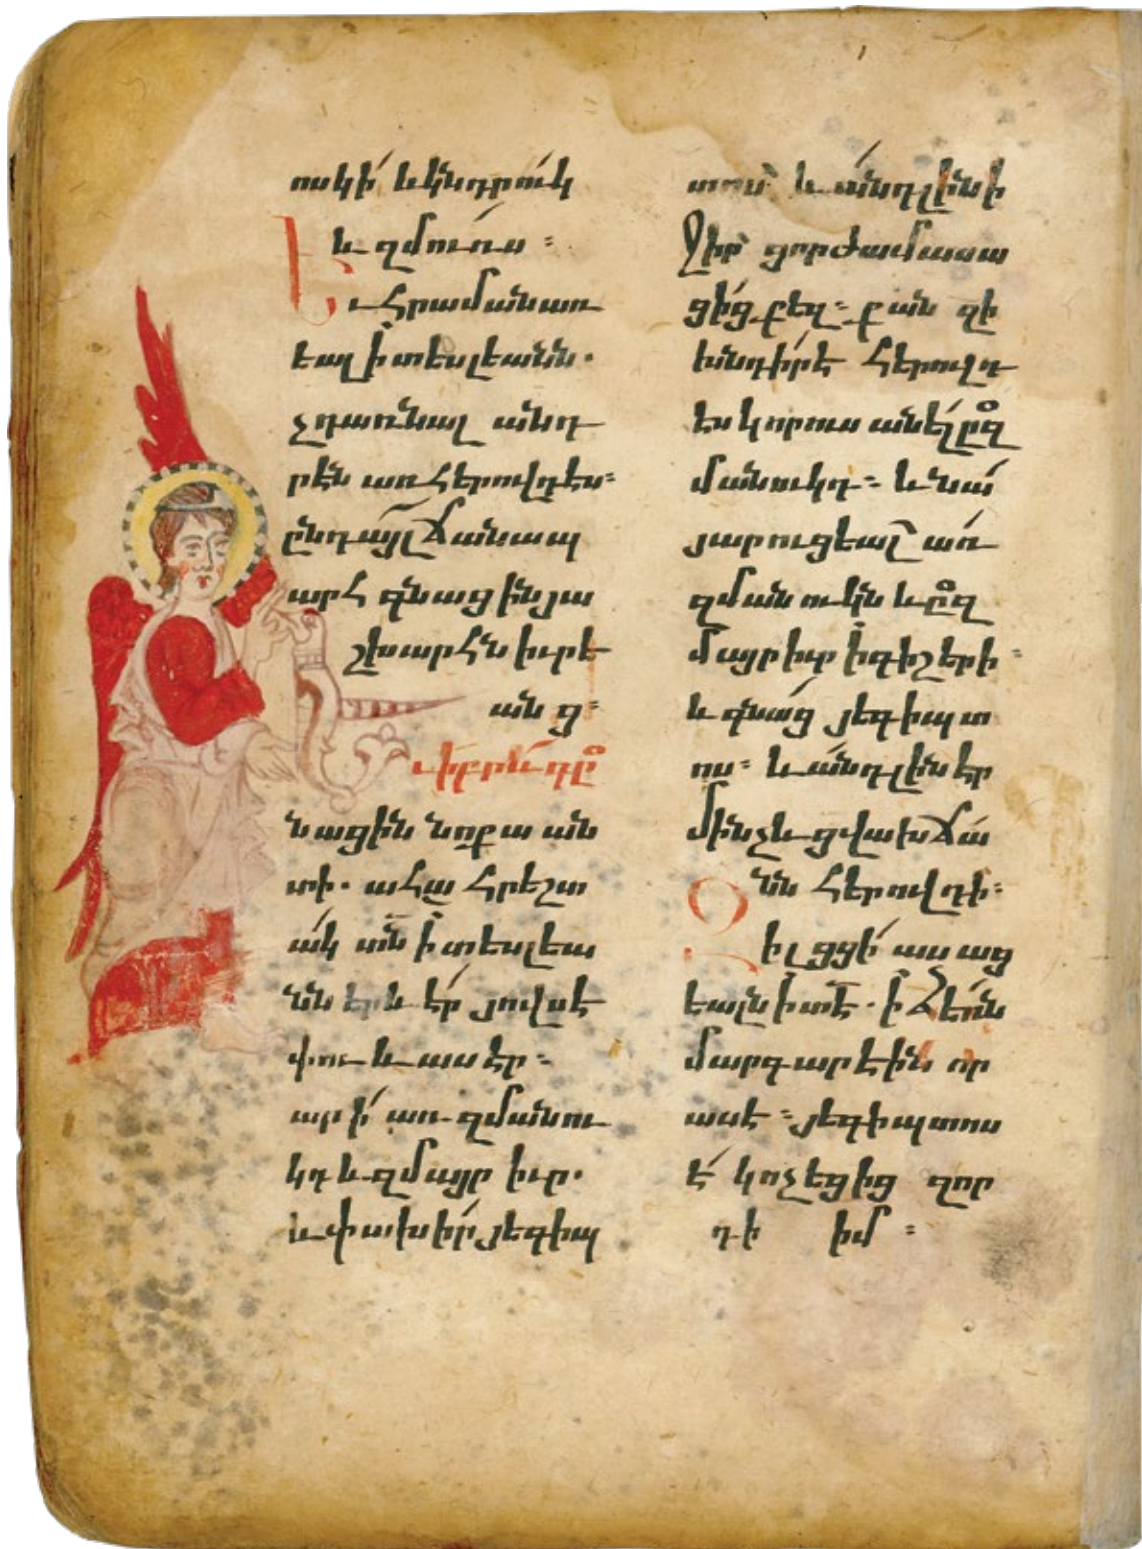 ոսկի և կնդրուկ
և զմուռս ։
Եւ հրաման առ
եալ ի տեսլեանն․
չդառնալ անդ
րէն առ հերովդէս։
ընդ այլ ճանապ
արհ գնացին յա
շխարհն իւրե
անց։
Իբրև գը
նացին նոքա ան
տի․ ահա հրեշտ
ակ տն ի տեսլեա
նն երևէր յովսէ
փու և ասէր։
արի առ զմանու
կդ և զմայր իւր․
և փախիր յեգիպ
տոս և անդ լինի
ջիր ցորժամ ասա
ցից քեզ։ քան զի
խնդիր է հերովդ
էս կորուսանել ըզ
մանուկդ։ և նա
յարուցեալ առ
զմանուկն և ըզ
մայր իւր ի գիշերի։
և գնաց յեգիպտ
ոս։ և անդ լինէր
մինչև ցվախճա
նն հերովդի։
Զի լցցի ասաց
եալն ի տէ․ ի ձեռն
մարգարէին որ
ասէ ։ յեգիպտոս
է կոչեցից զոր
դի իմ ։